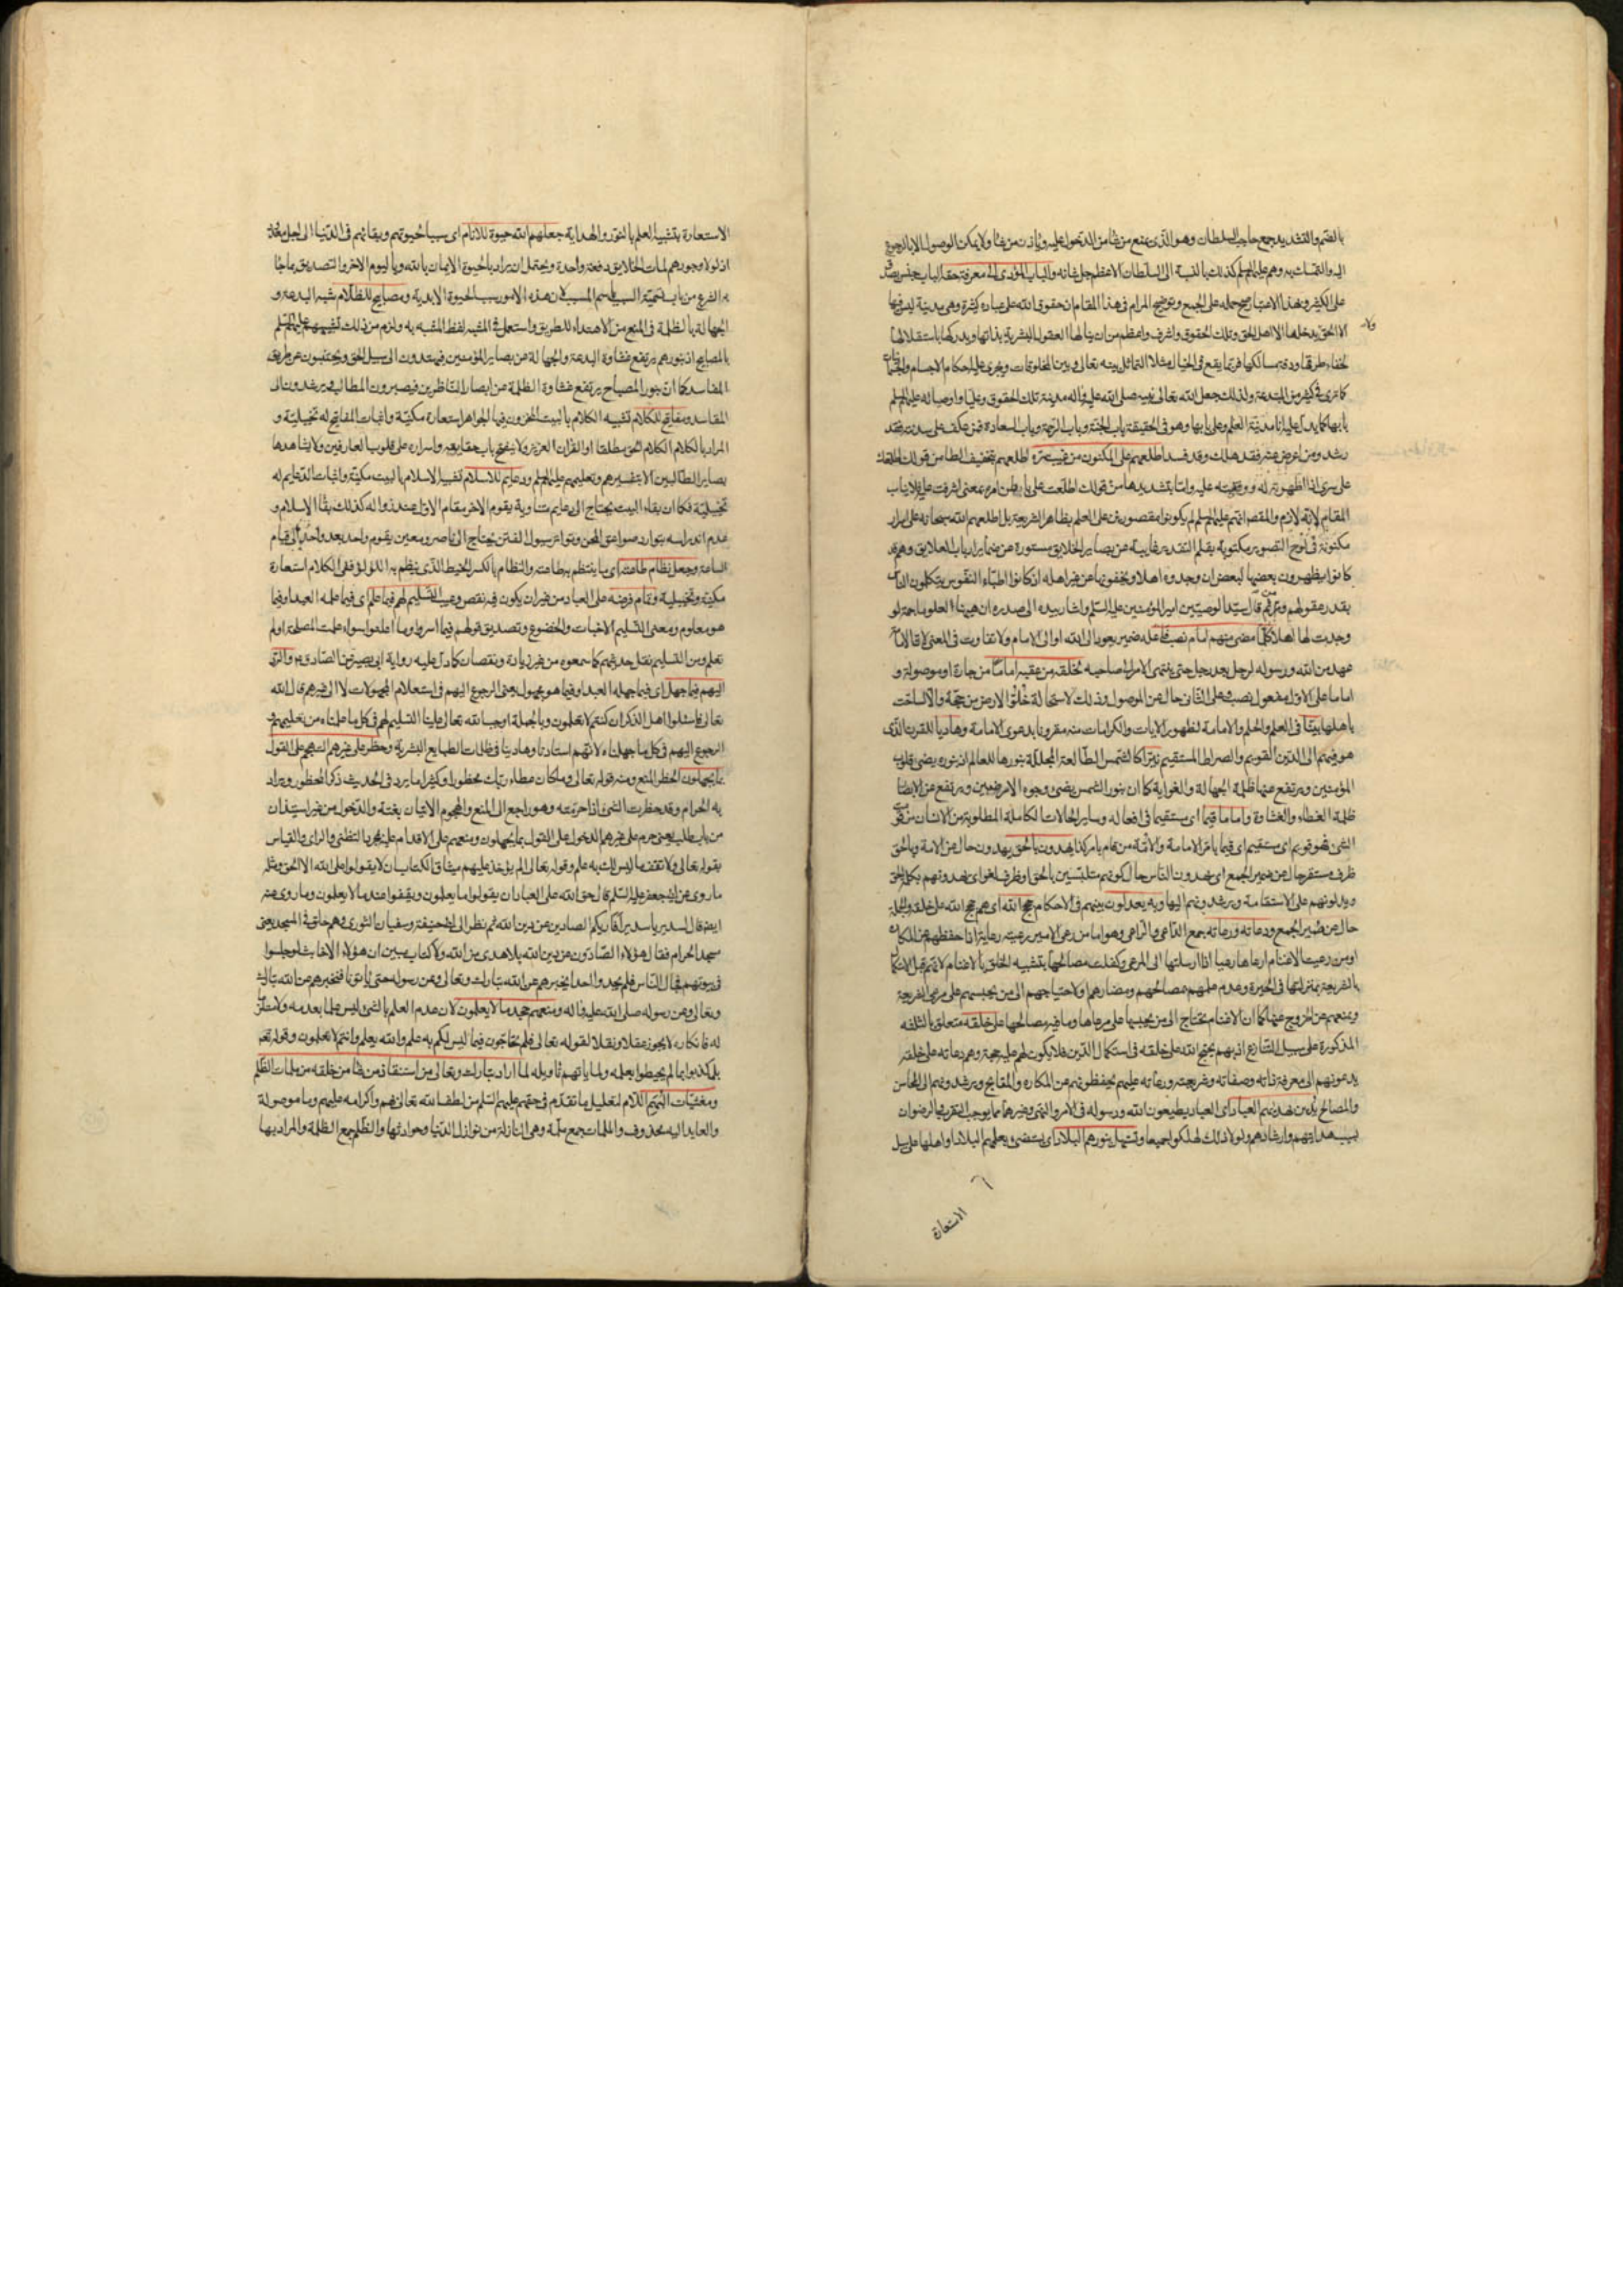 بالضم والتشديد جمع حاجب السلطان وهو الذي يمنع من شاء من الدخول عليه ويأذن من شاء ولا يمكن الوصول الا بالرجوع
اليه والتمسك به وهم عليهم السلم كذلك بالنسبة الى السلطان الاعظم جل شانه والباب المؤدي الى معرفة حقه الباب جنس يصدق
على الكثير وبهذا الاعتبار صح حمله على الجمع وتوضيح المرام في هذا المقام ان حقوق الله على عباده كثيرة وهي مدينة ليس فيها
الا الحق يدخلها الا اهل الحق وتلك الحقوق اشرف واعظم من ان ينالها العقول البشرية بذاتها ويدركها باستقلالها
ولا
لخفاء طرقها ودقة مسالكها فربما يقع في الخيال مثلا التماثل بينه تعالى وبين المخلوقات ويجري عليه احكام الاجسام والجسمانيات
كما ترى في كثير من المبتدعة ولذلك جعل الله تعالى نبيه صلى الله عليه واله مدينة تلك الحقوق وعليا واوصياءه عليهم السلم
بابها كما يدل عليه انا مدينة العلم وعلي بابها وهو في الحقيقة باب الجنة وباب الرحمة وباب السعادة فمن عكف على سدنته فقد
رشد ومن اعرض عنه فقد هلك وقد فسد اطلعهم على المكنون من غيب سره اطلعهم بتخفيف الطا من قولك اطلعتك
على سري اذا اظهرته له ووقفته عليه واما بتشديدها من قولك اطلعت على باطن امره بمعنى اشرفت عليه فلا يناسب
المقام لانه لازم والمقصد انهم عليهم السلم لم يكونوا مقصورين على العلم بظاهر الشريعة بل اطلعهم الله سبحانه على اسرار
مكنونة في لوح التصوير مكتوبة بقلم التقدير غايبة عن بصاير الخلايق مستورة عن ضماير ارباب العلايق وهم قد
كانوا يظهرون بعضها لبعض ان وجدوه اهلا ويخفونها عن غير اهله اذ كانوا اطباء النفوس يتكلمون الناس
بقدر عقولهم ومن ثم قال سيد الوصيين امير المؤمنين عليه السلم واشار بيده الى صدره ان ههنا العلوما جمة لو
وجدت لها اهلا كلما مضى منهم امام نصب لخلقه ضمير يعود الى الله او الى الامام ولا تفاوت في المعنى لان الامامة
عهد من الله ورسوله لرجل بعد رجل حتى ينتهي الامر الى صاحبه لخلقه من عقبه اماما من جارة او موصولة و
اماما على الاول مفعول نصب وعلى الثاني حال عن الموصول وذلك لاستحالة خلو الارض من حجة والا لساخت
باهلها بينا في العلم والحلم والامامة لظهور الايات والكرامات منه مقرونا بدعوى الامامة وهاديا للقرن الذي
هو فيهم الى الدين القويم والصراط المستقيم نيرا كالشمس الطالعة المجللة بنورها للعالم اذ بنوره يضئ قلوب
المؤمنين ويرتفع عنها ظلمة الجهالة والغواية كما ان بنور الشمس يضئ وجوه الارضيين ويرتفع عن الابصار
ظلمة الغطاء والغشاوة واماما قيما اى مستقيما في افعاله وساير الحالات الكاملة المطلوبة من الانسان من قوم
الشئ فهو قويم اى مستقيم اى قيما بامر الامامة والامة من قام بامر كذا يهدون بالحق يهدون حال عن الامة وبالحق
ظرف مستقر حال عن ضمير الجمع اى يهدون الناس حال كونهم متلبسين بالحق او ظرف لغو اى يهدونهم بكلمة الحق
ويدلونهم على الاستقامة ويرشدونهم اليها وبه يعدلون بينهم في الاحكام حجج الله اى هم حجج الله على خلقه والجملة
حال عن ضمير الجمع ودعاته ورعاته جمع الداعي والراعي وهو اما من رعى الامير رعيته رعاية اذا حفظهم عن المكاره
او من رعيت الاغنام ارعاها رعيا اذا ارسلتها الى المرعى وكفلت مصالحها بتشبيه الخلق بالاغنام لانهم قبل الاتكال
بالشريعة بمنزلتها في الحيرة وعدم علمهم بمصالحهم ومضارهم ولاحتياجهم الى من يحبسهم على مرعى الشريعة
ويمنعهم عن الخروج عنها كما ان الاغنام تحتاج الى من يحبسها على مرعاها وما فيه مصالحها على خلقه متعلق بالثلثة
المذكورة على سبيل التنازع اذ بهم يحتج الله على خلقه في استكمال الدين فلا يكون لهم عليه حجة وهم دعاته على خلقه
يدعونهم الى معرفة ذاته وصفاته وشريعته ورعاته عليهم يحفظونهم عن المكاره والمقابح ويرشدونهم الى المحاسن
والمصالح يدين بهديهم العباد اى العباد يطيعون الله ورسوله في الامر والنهي وغيرهما مما يوجب التقرب والرضوان
بسبب هدايتهم وارشادهم ولولا ذلك لهلكوا جميعا وتستهل بنورهم البلاد اى يستضئ بعلمهم البلاد او اهلها على سبيل
الاستعارة
الاستعارة بتشبيه العلم بالنور والهداية جعلهم الله حيوة للانام اى سببا لحيوتهم وبقائهم في الدنيا الى اجل معلوم
اذ لولا وجودهم لمات الخلايق دفعة واحدة ويحتمل ان يراد بالحيوة الايمان بالله وباليوم الاخر والتصديق بما جاء
به الشرع من باب تسمية السبب باسم المسبب لان هذه الامور سبب الحيوة الابدية ومصابيح للظلام شبه البدعة و
الجهالة بالظلمة في المنع من الاهتداء للطريق واستعمل في المشبه لفظ المشبه به ولزم من ذلك تشبيههم عليهم السلم
بالمصابيح اذ بنورهم يرتفع غشاوة البدعة والجهالة عن بصاير المؤمنين فيهتدون الى سبيل الحق ويجتنبون عن طريق
المفاسد كما ان بنور المصباح يرتفع غشاوة الظلمة عن ابصار الناظرين فيبصرون المطالب ويرشدون الى
المقاسد ومفاتيح للكلام تشبيه الكلام بالبيت المخزون فيه الجواهر استعارة مكنية واثبات المفاتيح له تخييلية و
المراد بالكلام الكلام الحق مطلقا او القران العزيز ولا ينفتح باب حقايقه واسراره على قلوب العارفين ولا يشاهدها
بصاير الطالبين الا بتفسيرهم وتعليمهم عليهم السلم ودعايم للاسلام تشبيه الاسلام بالبيت مكنية واثبات الدعايم له
تخييلية فكما ان بقاء البيت يحتاج الى دعايم متناوبة يقوم الاخر مقام الاول عند زواله كذلك بقاء الاسلام و
عدم اندراسه بتوارد صواعق المحن وتواتر سيول الفتن يحتاج الى ناصر ومعين يقوم واحد بعد واحد الى قيام
الساعة وجعل نظام طاعته اى ما ينتظم به طاعته والنظام بالكسر الخيط الذي ينظم به اللؤلؤ ففي الكلام استعارة
مكنية وتخييلية وتمام فرضه على العباد من غير ان يكون فيه نقص وعيب التسليم لهم فيما علم اى فيما علمه العباد وفيما
هو معلوم ومعنى التسليم الاخبات والخضوع وتصديق قولهم فيما اسروا وما اعلنوا سواء علمت المصلحة او لم
تعلم ومن التسليم نقل حديثهم كما سمعوه من غير زيادة ونقصان كما دل عليه رواية ابي بصير عن الصادق ع والرد
اليهم فيما جهل اى فيما جهله العباد وفيما هو مجهول ومعنى الرجوع اليهم في استعلام المجهولات لا الى غيرهم قال الله
تعالى فاسئلوا اهل الذكر ان كنتم لا تعلمون وبالجملة اوجب الله تعالى علينا التسليم لهم في كل ما علمناه من تعليمهم و
الرجوع اليهم في كل ما جهلناه لانهم استادنا وهادينا في ظلمات الطبايع البشرية وحظر على غيرهم التهجم على القول
بما يجهلون الحظر المنع ومنه قوله تعالى وما كان عطاء ربك محظورا وكثيرا ما يرد في الحديث ذكر المحظور ويراد
به الحرام وقد حظرت الشئ اذا حرمته وهو راجع الى المنع والهجوم الاتيان بغتة والدخول من غير استيذان
من باب طلب يعني حرم على غيرهم الدخول على القول بما يجهلون ومنعهم على الاقدام عليه بمجرد التظني والراى والقياس
بقوله تعالى ولا تقف ما ليس لك به علم وقوله تعالى الم يؤخذ عليهم ميثاق الكتاب ان لا يقولوا على الله الا الحق ومثله
ما روى عن ابي جعفر عليه السلم قال حق الله على العباد ان يقولوا ما يعلمون ويقفوا عند ما لا يعلمون وما روى عنه
ايضا قال لسدير يا سدير افاريكم الصادين عن دين الله ثم نظر الى ابي حنيفة وسفيان الثوري وهم حلق في المسجد يعني
مسجد الحرام فقال هؤلاء الصادون عن دين الله بلا هدى من الله ولا كتاب مبين ان هؤلاء الاخابث لو جلسوا
في بيوتهم فجال الناس فلم يجدوا احدا يخبرهم عن الله تبارك وتعالى وعن رسوله حتى ياتونا فنخبرهم عن الله تبارك
وتعالى وعن رسوله صلى الله عليه واله ومنعهم جحد ما لا يعلمون لان عدم العلم بالشئ ليس علما بعدمه ولا مستلزما
له فانكاره لا يجوز عقلا ونقلا لقوله تعالى فلم تحاجون فيما ليس لكم به علم والله يعلم وانتم لا تعلمون وقوله تعالى
بل كذبوا بما لم يحيطوا بعلمه ولما ياتهم تاويله لما اراد تبارك وتعالى من استنقاذ من شاء من خلقه من ملمات الظلم
ومغشيات البهم اللام لتعليل ما تقدم في حقهم عليهم السلم من لطف الله تعالى بهم واكرامه عليهم وما موصولة
والعايد اليه محذوف والملمات جمع ملمة وهي النازلة من نوازل الدنيا وحوادثها والظلم جمع الظلمة والمراد بها